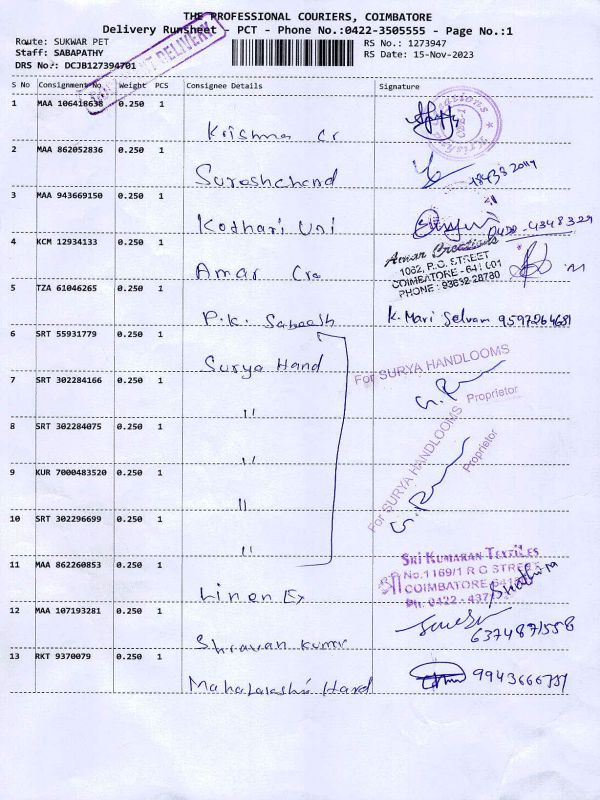 THE PROFESSIONAL COURIERS, COIMBATORE
Delivery Runsheet - PCT - Phone No.:0422-3505555 - Page No.:1
Route: SUKWAR PET
Staff: SABAPATHY
DRS No.: DCJB127394701
RS No.: 1273947
RS Date: 15-Nov-2023
DELIVERY
S No Consignment No. Weight PCS Consignee Details Signature
1 MAA 106418638 0.250 1
Krishna Cr
2 MAA 862052836 0.250 1
Sureshchand
3 MAA 943669150 0.250 1
Kothari Uni
4 KCM 12934133 0.250 1
Amar Cre
Amar Creations
1082, P.C. STREET
COIMBATORE - 641 001
PHONE : 93632-28780
5 TZA 61046265 0.250 1
P.K. Sabeesh K. Mari Selvam
6 SRT 55931779 0.250 1
Surya Hand
For SURYA HANDLOOMS
Proprietor
7 SRT 302284166 0.250 1
"
8 SRT 302284075 0.250 1
"
For SURYA HANDLOOMS
Proprietor
9 KUR 7000483520 0.250 1
"
10 SRT 302296699 0.250 1
"
11 MAA 862260853 0.250 1
Linen Ex
SRI KUMARAN TEXTILES
No.1169/1 R G STREET
COIMBATORE
Ph: 0422 -
12 MAA 107193281 0.250 1
Shravan Kumar 6374871558
13 RKT 9370079 0.250 1
Mahalakshmi Hand